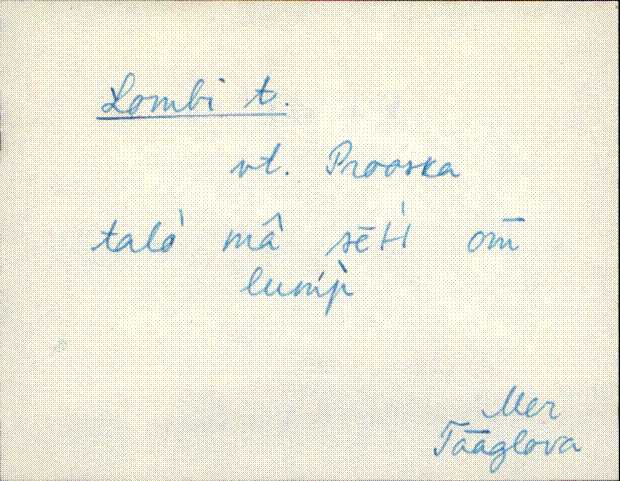 Lombi t.
vt. Prooska
talo' mâ sēt́i om̄
lumṕ̀
Mer
Tääglova